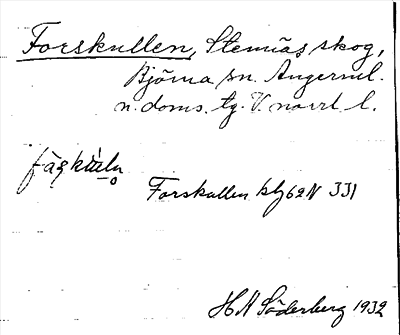 Forskullen, Stemnäs skog,
Björna sn. Ångerml.
n. doms. tg. V. norrl l.
Forskullen blg 62 N 331
H N Söderberg 1932